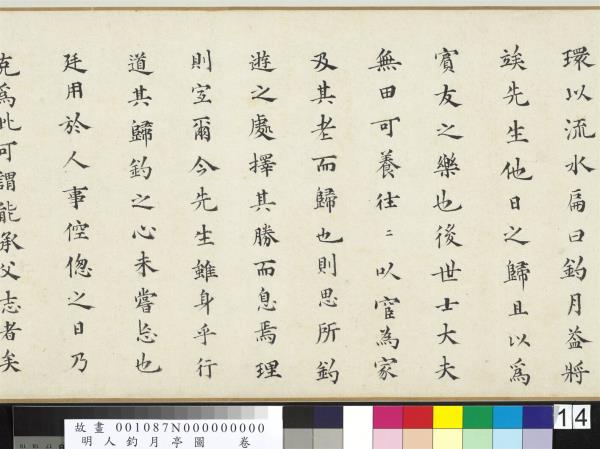 環以流水扁曰釣月蓋將
竢先生他日之歸且以爲
賓友之樂也後世士大夫
無田可養往〻以官為家
及其老而歸也則思所釣
遊之處擇其勝而息焉理
則宜爾今先生雖身乎行
道其歸釣之心未嘗忘也
廷用於人事倥傯之日乃
克爲此可謂能承父志者矣
14
故畫 001087N000000000
明人釣月亭圖 卷